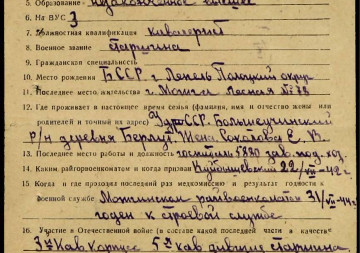 5. Образование незаконченное высшее
6. На ВУС 3
7. Должностная квалификация кавалерист
8. Военное звание старшина
9. Гражданская специальность
10. Место рождения БССР г. Лепель Полоцкий округ
11. Последнее место жительства г. Можга Лесная № 78
12. Где проживает в настоящее время семья (фамилия, имя и отчество жены или
родителей и точный их адрес) УдССР. Большеучинский
р/н деревня Жена Соколова Е. В.
13. Последнее место работы и должность госпиталь 5880 зав. под. хоз.
14. Каким райгорвоенкоматом и когда призван 22/VII-42 г.
15. Когда и где проходил последний раз медкомиссию и результат годности к
военной службе Можгинском райвоенкомате 31/VII-44 г.
годен к строевой службе
16. Участие в Отечественной войне (в составе какой последней части и в качестве
3й Кав корпус 5я кав дивизия старшина